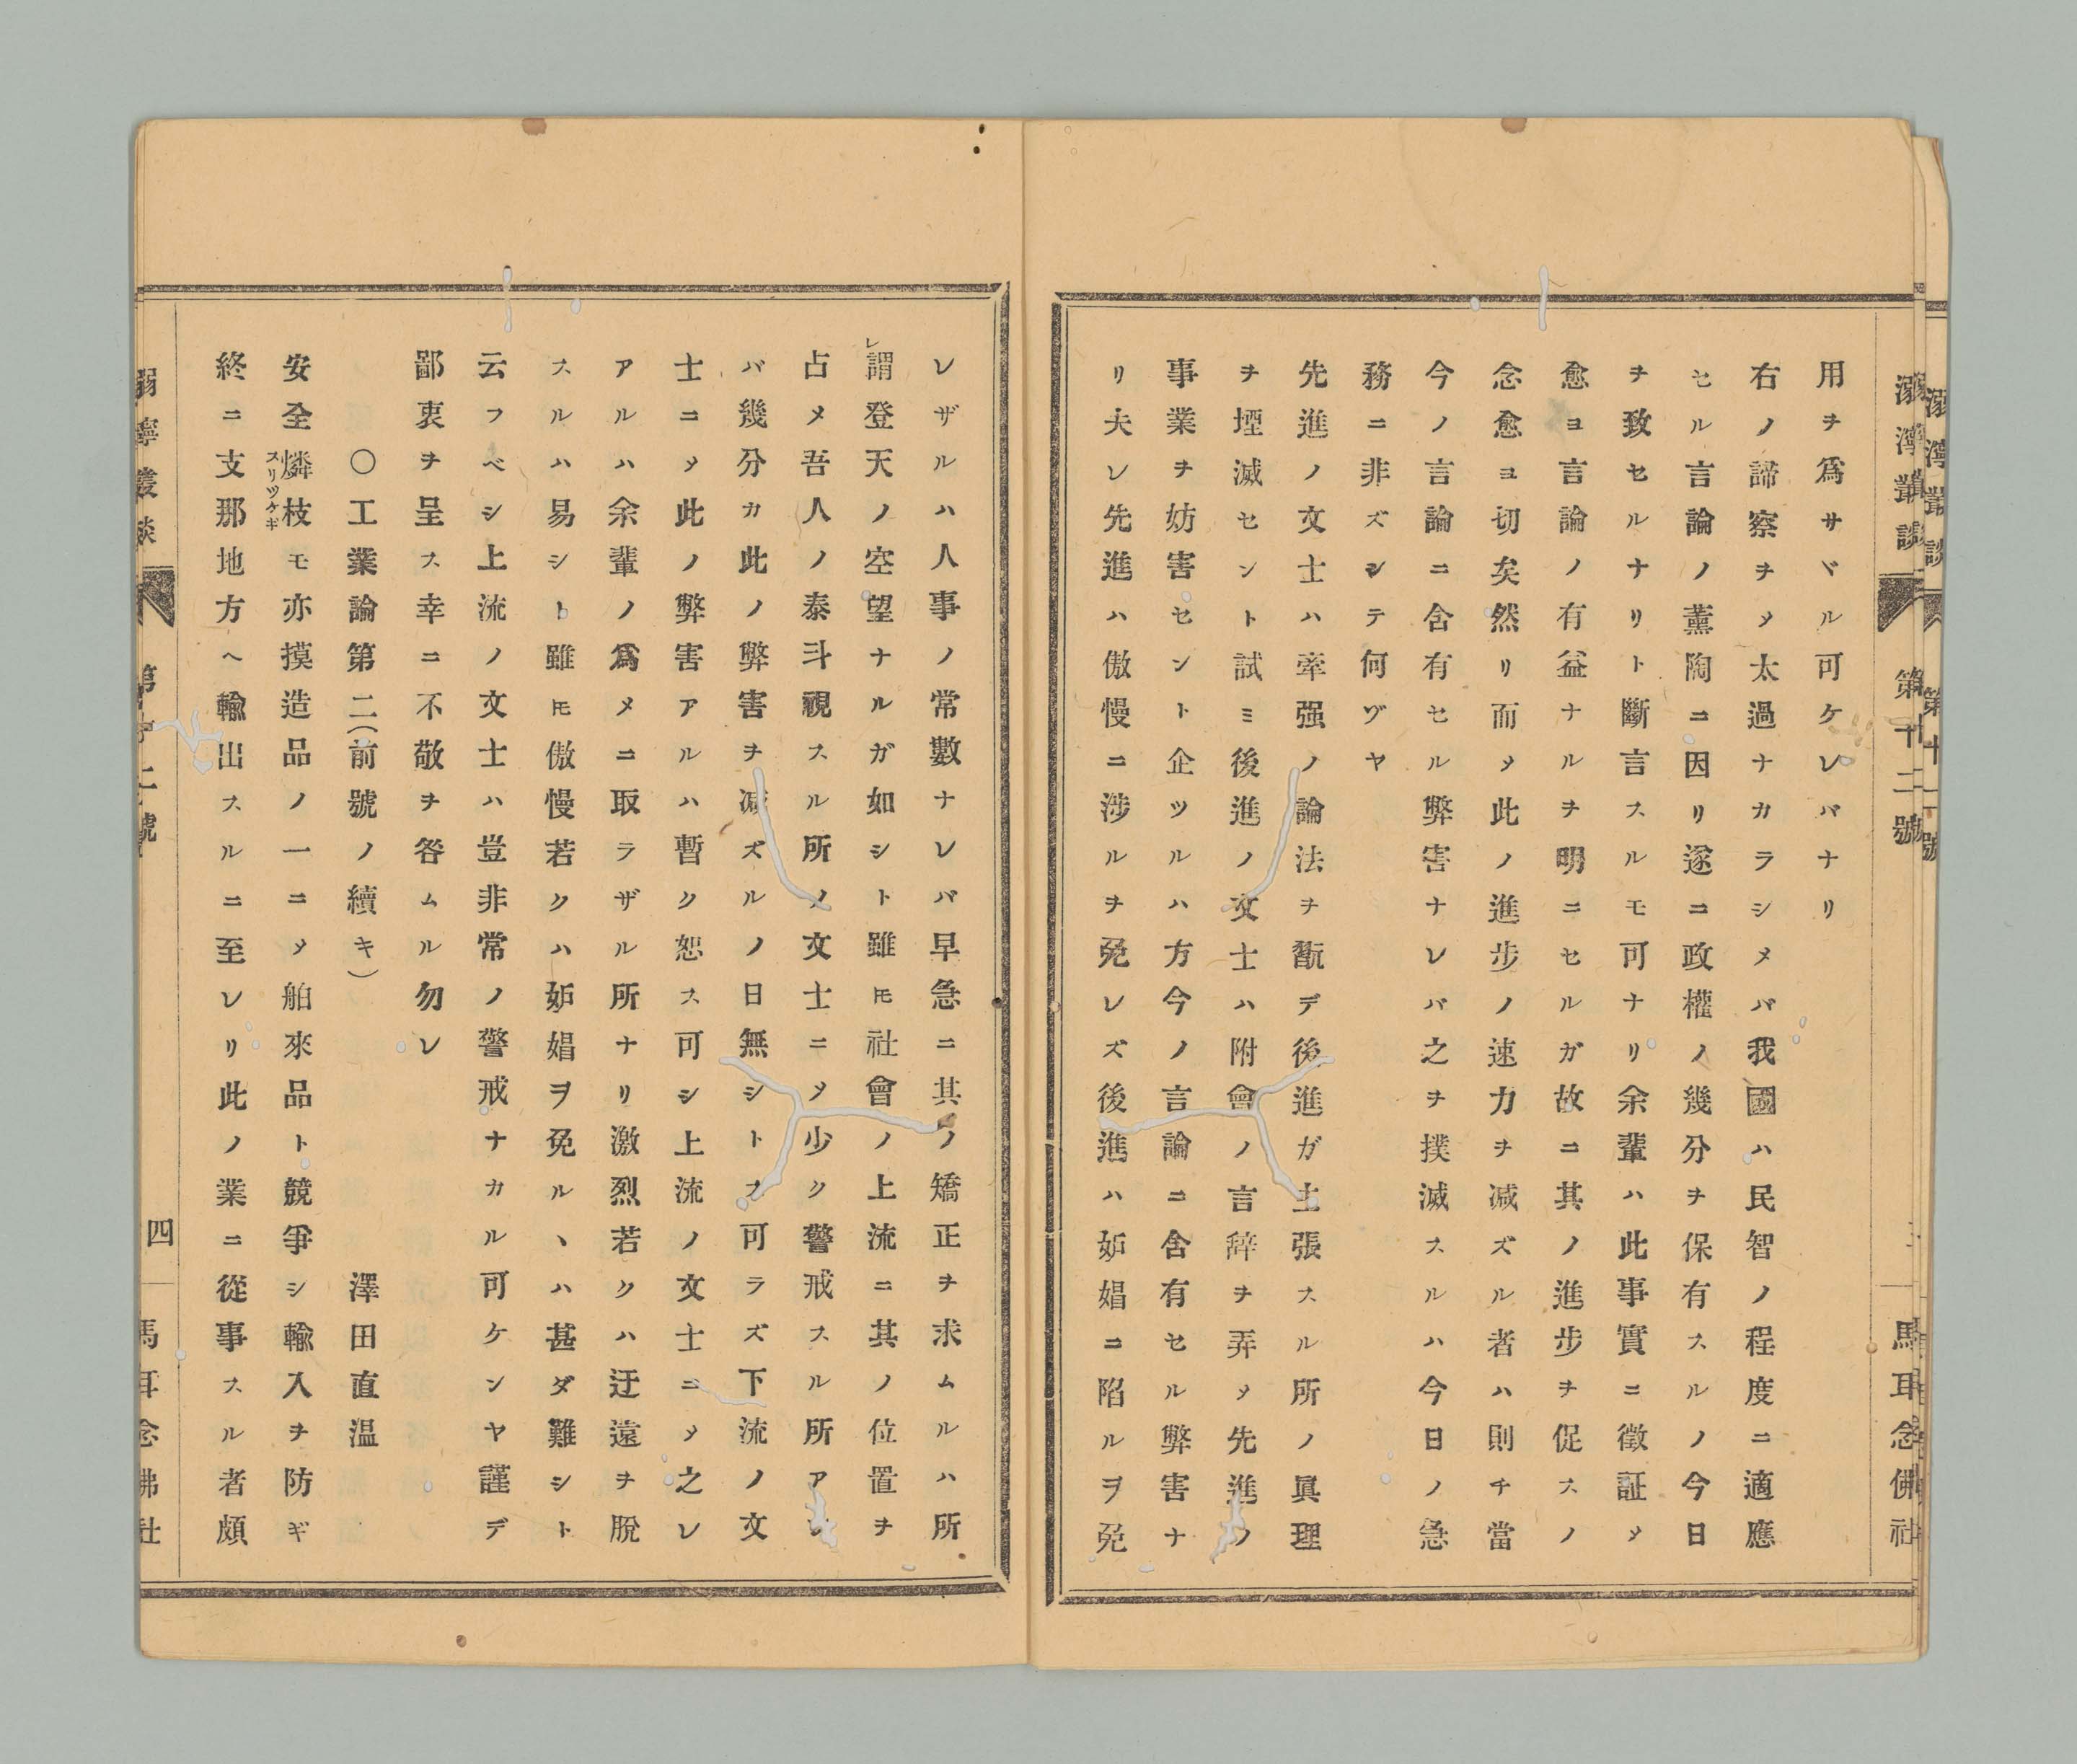 溺濘叢談　第十二號　三　馬耳念佛社
用ヲ爲サヾル可ケレバナリ
右ノ諦察ヲメ太過ナカラシメバ我國ハ民智ノ程度ニ適應
セル言論ノ薫陶ニ因リ遂ニ政權ノ幾分ヲ保有スルノ今日
ヲ致セルナリト斷言スルモ可ナリ余輩ハ此事實ニ徵証メ
愈ヨ言論ノ有益ナルヲ明ニセルガ故ニ其ノ進步ヲ促スノ
念愈ヨ切矣然リ而メ此ノ進步ノ速力ヲ减ズル者ハ則チ當
今ノ言論ニ含有セル弊害ナレバ之ヲ撲滅スルハ今日ノ急
務ニ非ズシテ何ヅヤ
先進ノ文士ハ牽强ノ論法ヲ翫デ後進ガ主張スル所ノ眞理
ヲ堙滅セント試ミ後進ノ文士ハ附會ノ言辭ヲ弄メ先進ノ
事業ヲ妨害セント企ツルハ方今ノ言論ニ含有セル弊害ナ
リ夫レ先進ハ傲慢ニ涉ルヲ免レズ後進ハ妬媢ニ陷ルヲ免
レザルハ人事ノ常數ナレバ早急ニ其ノ矯正ヲ求ムルハ所
レ謂登天ノ空望ナルガ如シト雖𪜈社會ノ上流ニ其ノ位置ヲ
占メ吾人ノ泰斗視スル所ノ文士ニメ少ク警戒スル所アレ
バ幾分カ此ノ弊害ヲ减ズルノ日無シトス可ラズ下流ノ文
士ニメ此ノ弊害アルハ暫ク恕ス可シ上流ノ文士ニメ之レ
アルハ余輩ノ爲メニ取ラザル所ナリ激烈若クハ迂遠ヲ脫
スルハ易シト雖𪜈傲慢若クハ妬媢ヲ免ルヽハ甚ダ難シト
云フベシ上流ノ文士ハ豈非常ノ警戒ナカル可ケンヤ謹デ
鄙衷ヲ呈ス幸ニ不敬ヲ咎ムル勿レ
〇工業論第二（前號ノ續キ）　澤田直温
安全燐枝モ亦摸造品ノ一ニメ舶來品ト競爭シ輸入ヲ防ギ
スリツケギ
終ニ支那地方ヘ輸出スルニ至レリ此ノ業ニ從事スル者頗
溺濘叢談　第十二號　四　馬耳念佛社